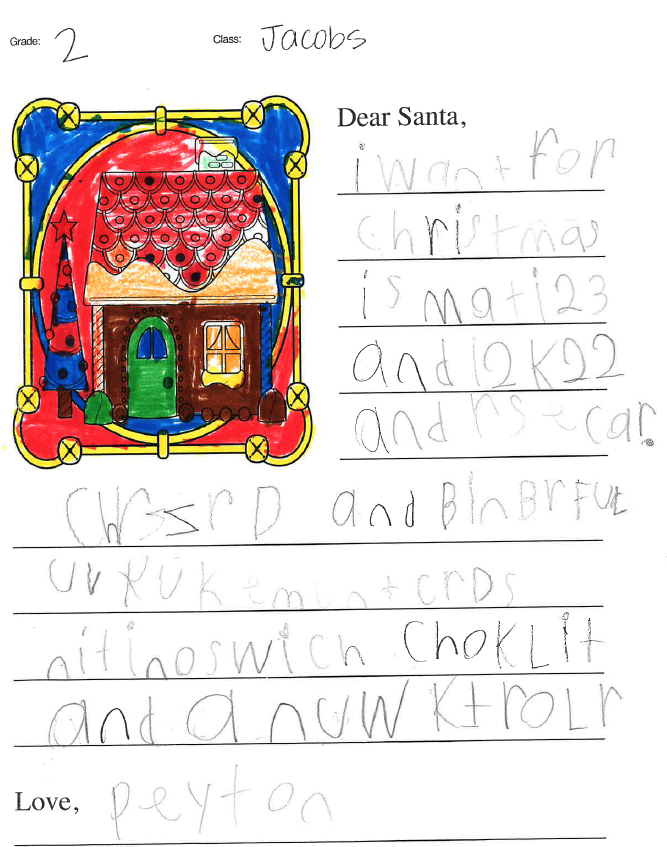 Grade: 2 Class: Jacobs
Dear Santa,
i want for
christmas
is mati23
and i2K22
and rSe car.
and BinBrFUL
crDs
nitinoswich choKLit
and a nuw KtroLr
Love, peyton